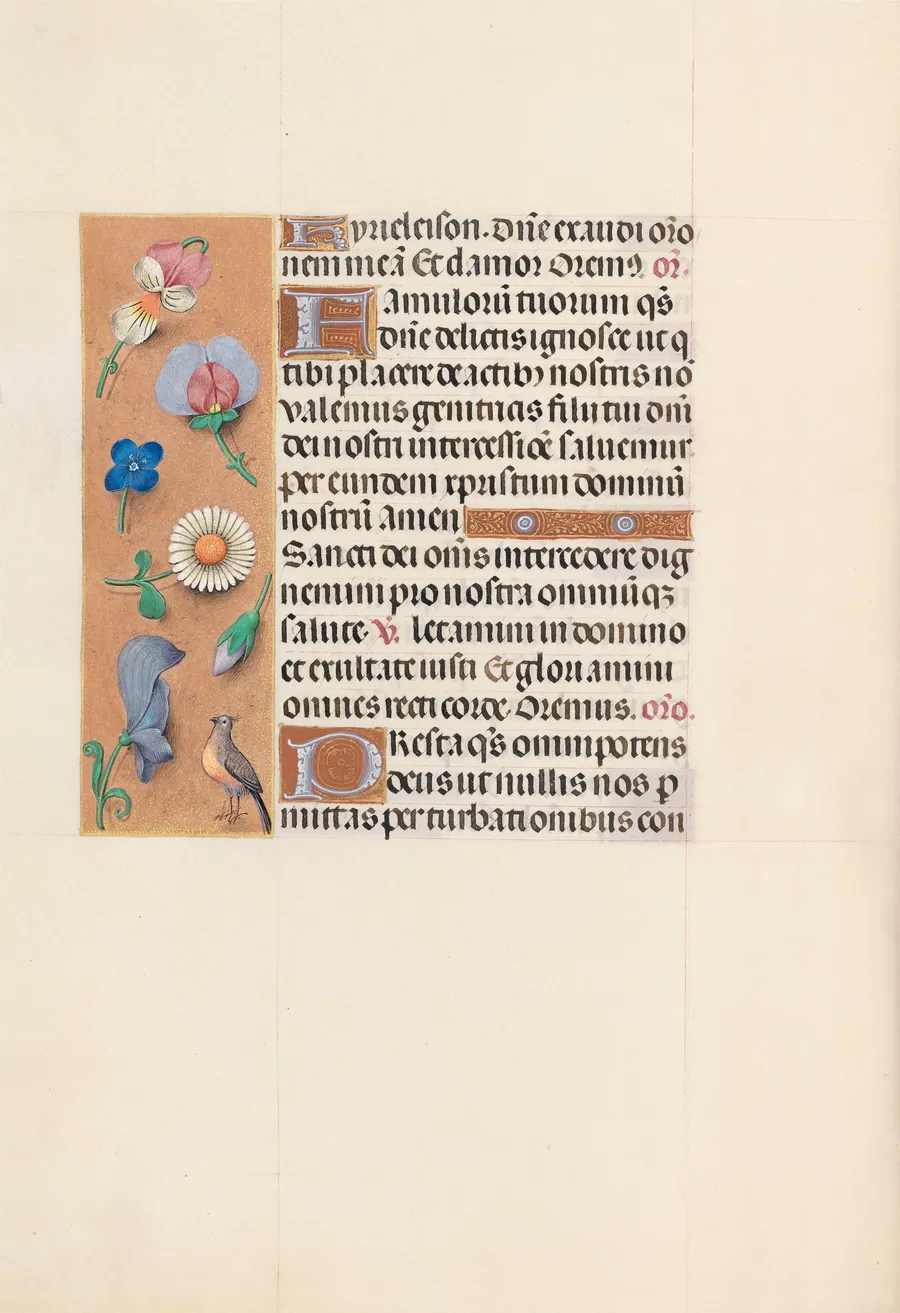 Kyrieleison. Dñe exaudi orõ
nem meã Et clamor Oremꝰ. or̃.
Famulorũ tuorum qs̃
dñe delictis ignosce ut q
tibi placere de actibꝫ nostris nõ
valemus genitricis filii tui dñi
dei nostri intercessiõe saluemur
per eundem xpristum dominũ
nostrũ amen
Sancti dei oñis intercedere dig
nemini pro nostra omniũqꝫ
salute. V̵. letamini in domino
et exultate iusti Et gloriamini
omnes recti corde. Oremus. orõ.
PResta qs̃ omnipotens
deus ut nullis nos ꝑ
mittas perturbationibus con